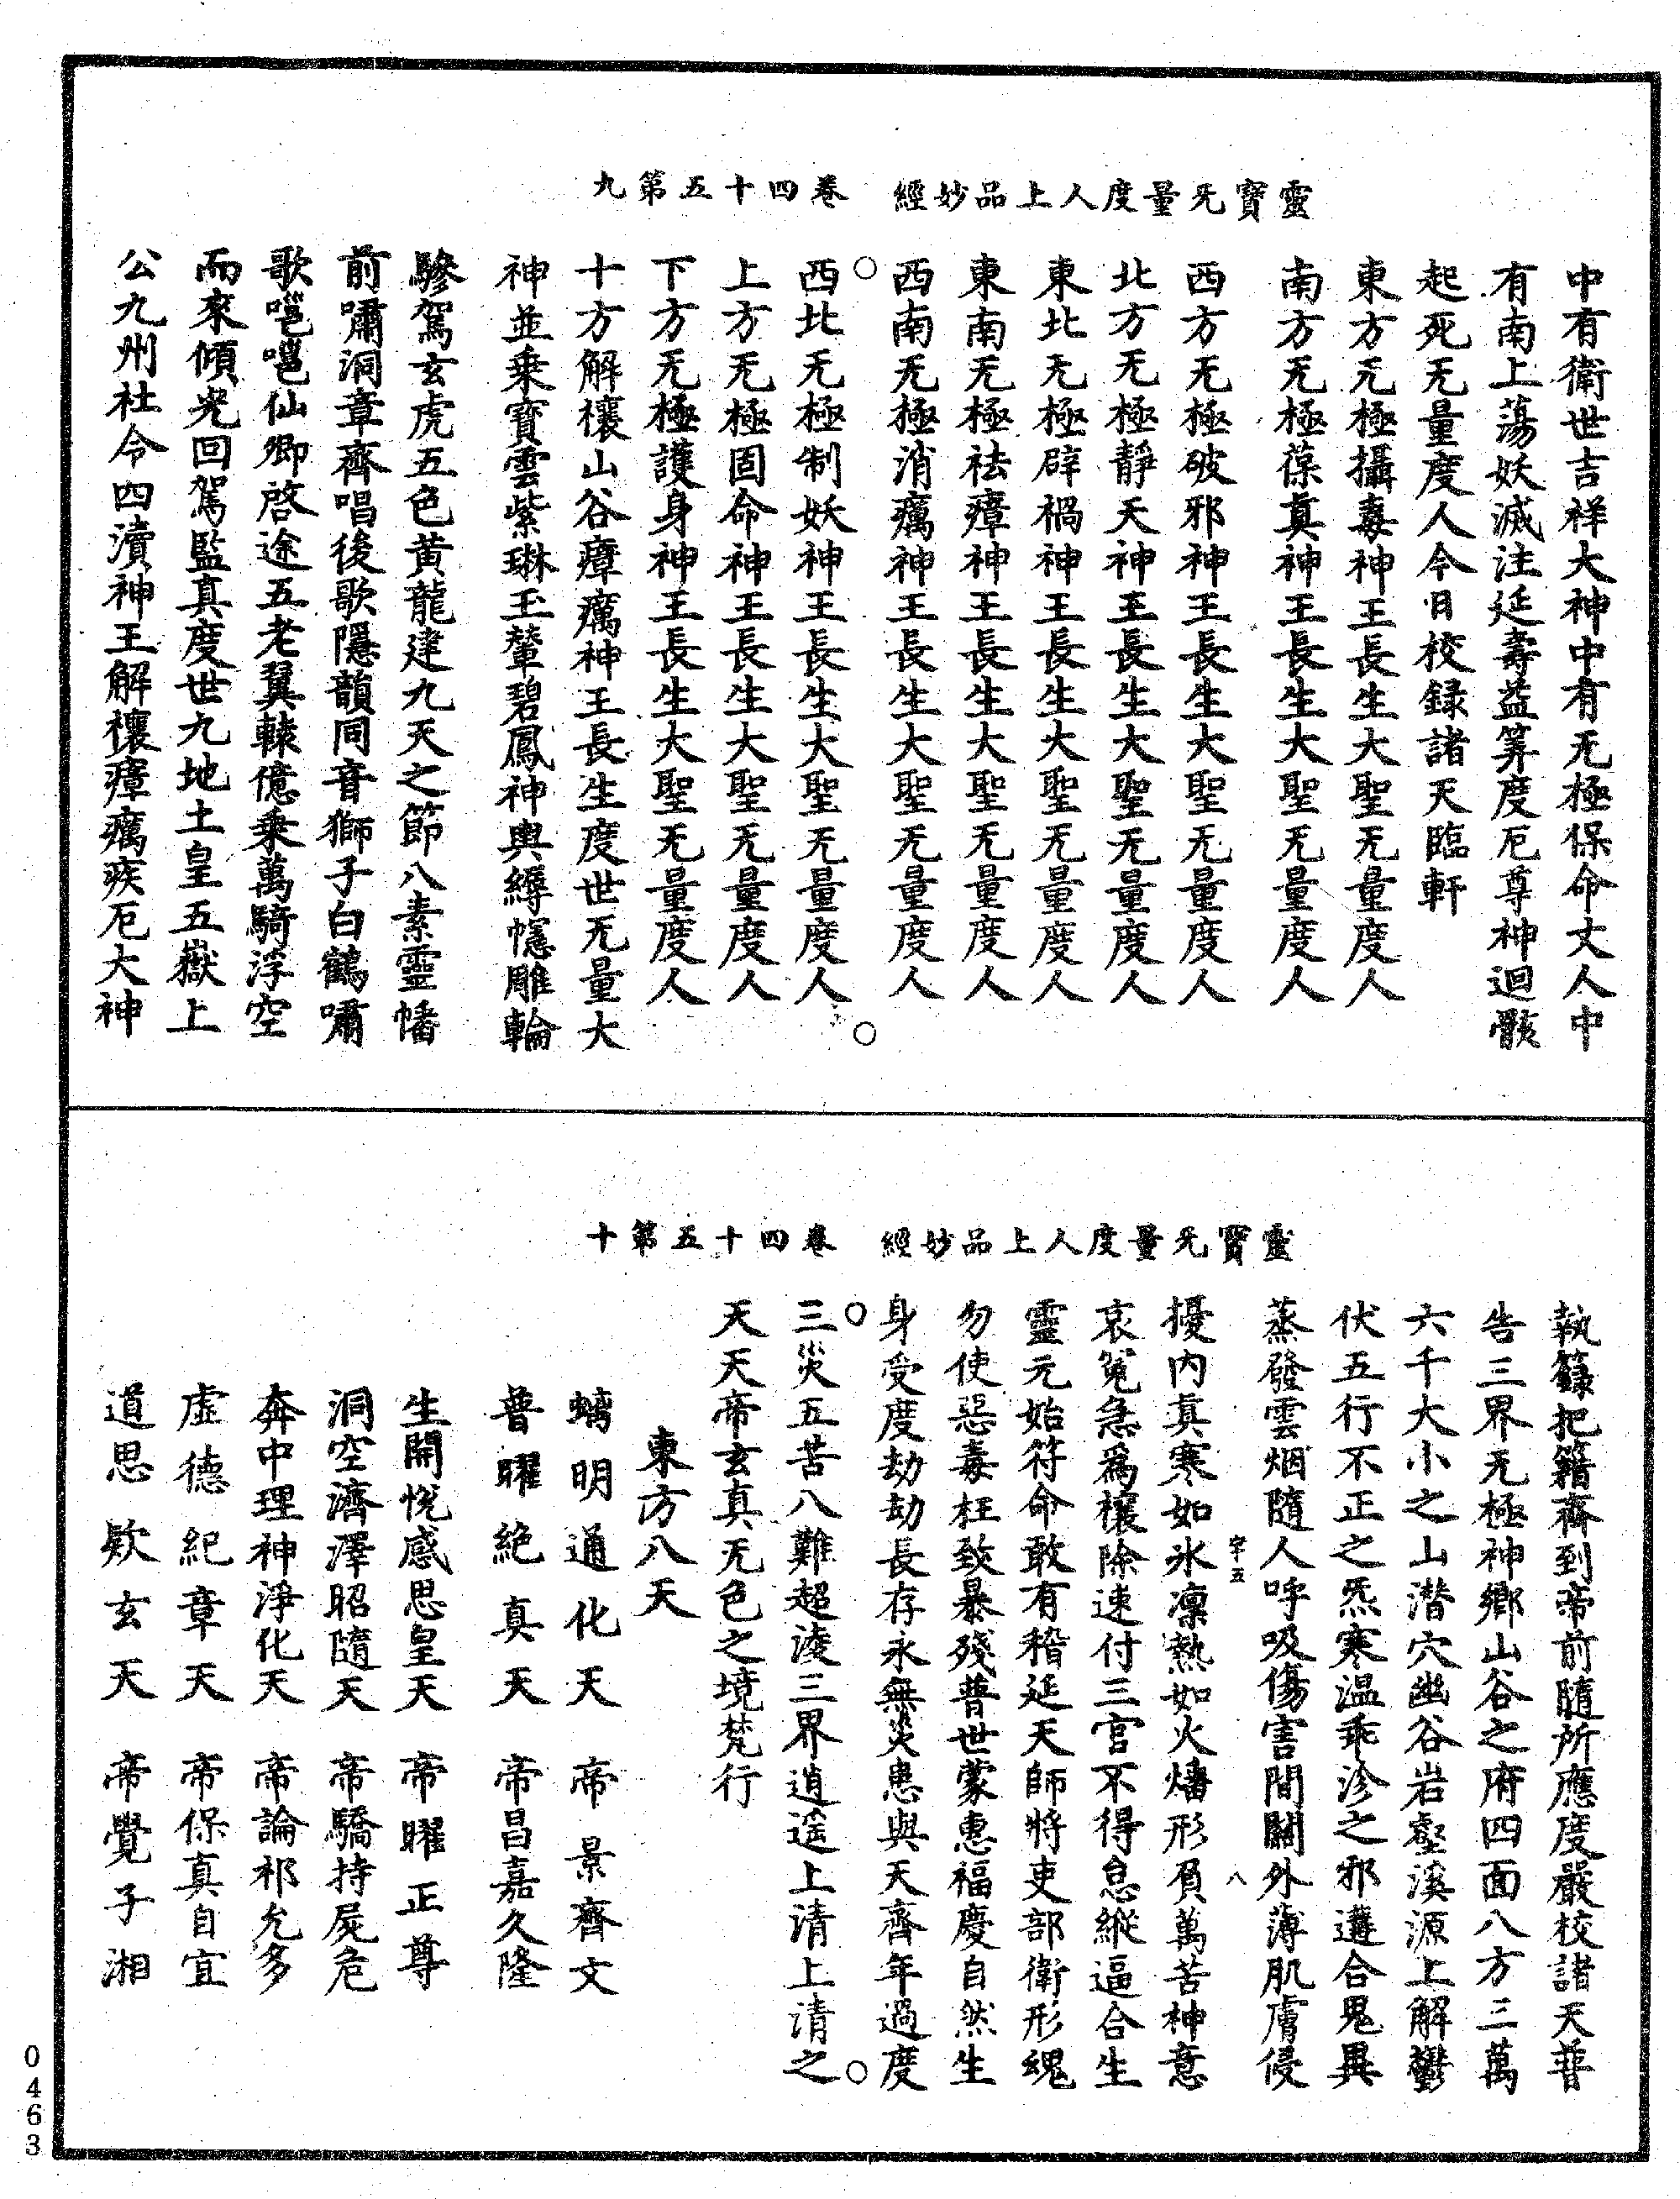 靈寶无量度人上品妙經　卷四十五第九
中有衛世吉祥大神中有无極保命丈人中
有南上蕩妖滅注延壽益筭度厄尊神迴骸
起死无量度人今日校録諸天臨軒
東方无極攝毒神王長生大聖无量度人
南方无極葆真神王長生大聖无量度人
西方无極破邪神王長生大聖无量度人
北方无極靜天神王長生大聖无量度人
東北无極辟禍神王長生大聖无量度人
東南无極祛瘴神王長生大聖无量度人
西南无極消癘神王長生大聖无量度人
西北无極制妖神王長生大聖无量度人
上方无極固命神王長生大聖无量度人
下方无極護身神王長生大聖无量度人
十方解禳山谷瘴癘神王長生度世无量大
神並乗寶雲紫琳玉輦碧鳳神輿縟幰雕輪
驂駕玄虎五色黄龍建九天之節八素靈幡
前嘯洞章齊唱後歌隱韻同音獅子白鶴嘯
歌嗈嗈仙卿啓途五老翼轅億乗萬騎浮空
而來傾光回駕監真度世九地土皇五嶽上
公九州社令四瀆神王解禳瘴癘疾厄大神
靈寶无量度人上品妙經　卷四十五第十
執籙把籍齊到帝前隨所應度嚴校諸天普
告三界无極神鄉山谷之府四面八方三萬
六千大小之山潛穴幽谷岩壑溪源上解鬱
伏五行不正之炁寒温乖沴之邪遘合鬼異
蒸發雲烟隨人呼吸傷害間關外薄肌膚侵
字五　八
擾内真寒如氷凛熱如火燔形負萬苦神意
哀冤急爲禳除速付三官不得怠縱逼合生
靈元始符命敢有稽延天師將吏部衛形魂
勿使惡毒枉致暴殘普世蒙惠福慶自然生
身受度劫劫長存永無災患與天齊年過度
三災五苦八難超淩三界逍遥上清上清之
天天帝玄真无色之境梵行
東方八天
蟎明通化天　帝景齊文
普曜絶真天　帝昌嘉久隆
生開悅感思皇天　帝曜正尊
洞空濟澤昭隨天　帝驕持屍危
奔中理神淨化天　帝論祁允多
虛德紀章天　帝保真自宜
道思欵玄天　帝覺子湘
0463